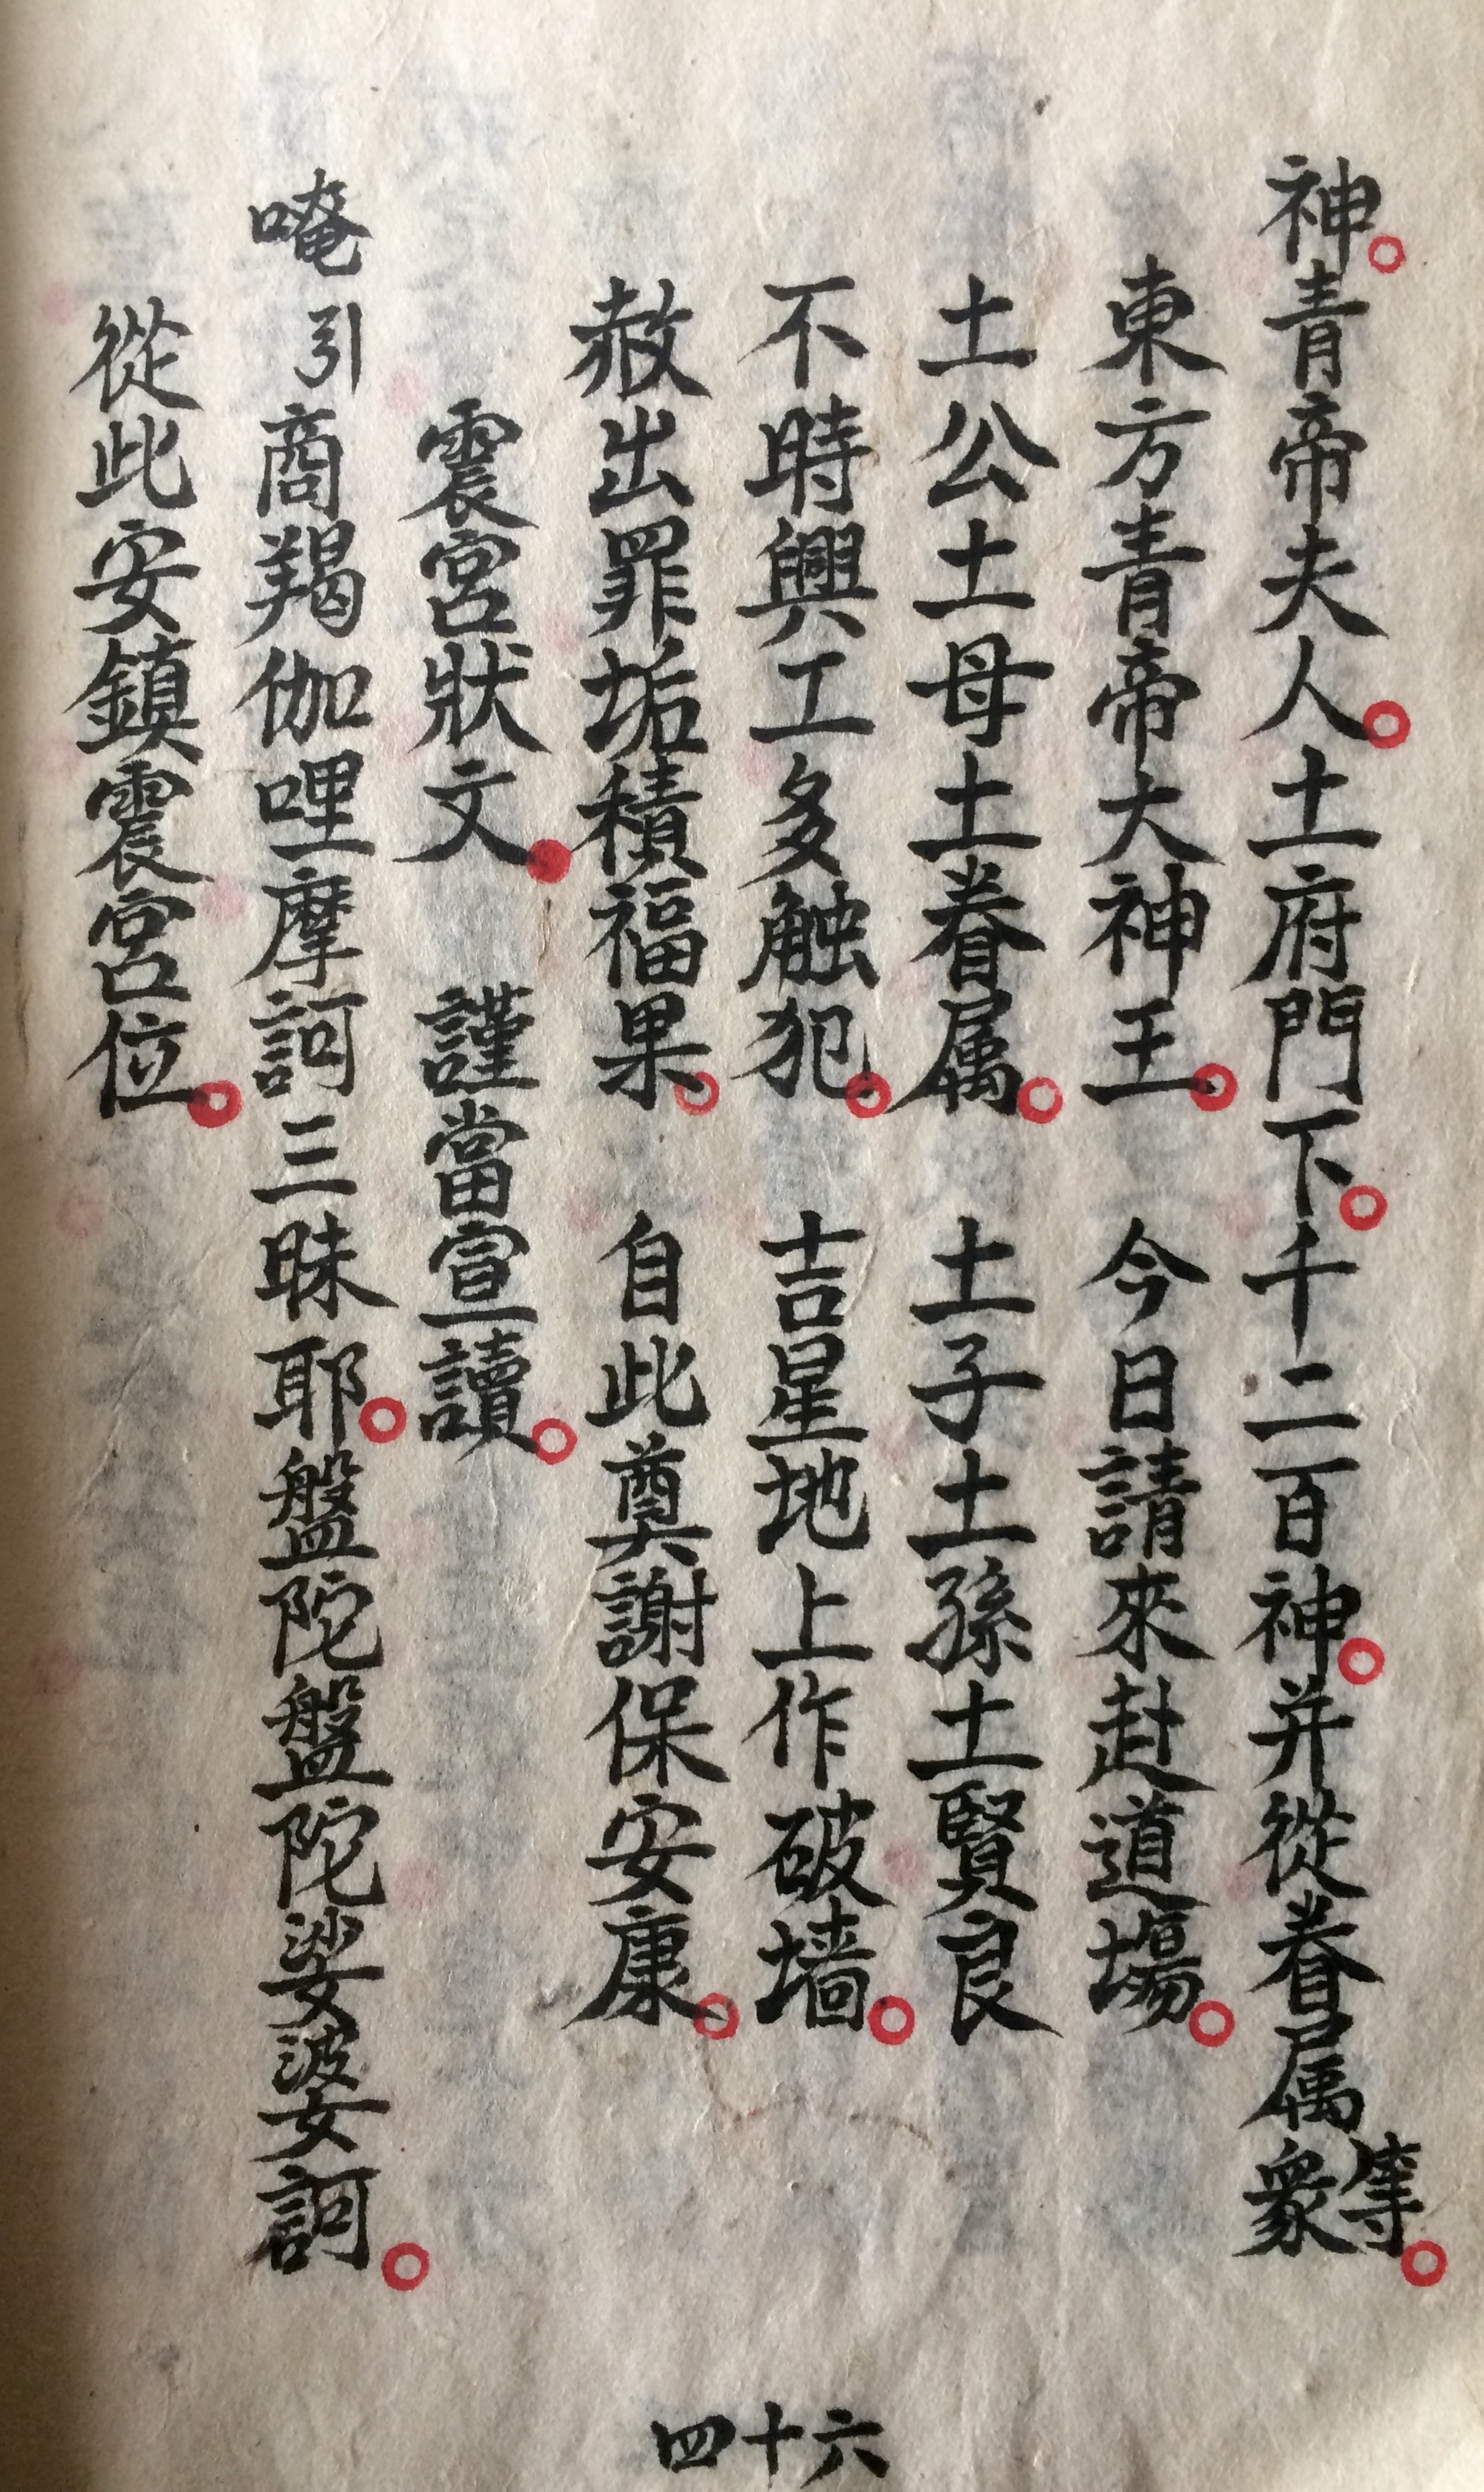 神。青帝夫人。土府門下。千二百神。并從眷属衆等。
東方青帝大神王。 今日請來赴道場。
土公土母土眷属。 土子土孫土賢良
不時興工多触犯。 吉星地上作破墙。
赦出罪垢積福果。 自此奠謝保安康。
震宮狀文 謹當宣讀。
唵引商羯伽哩摩訶三昧耶。盤陀盤陀娑婆訶。
從此安鎮震宮位。
四十六